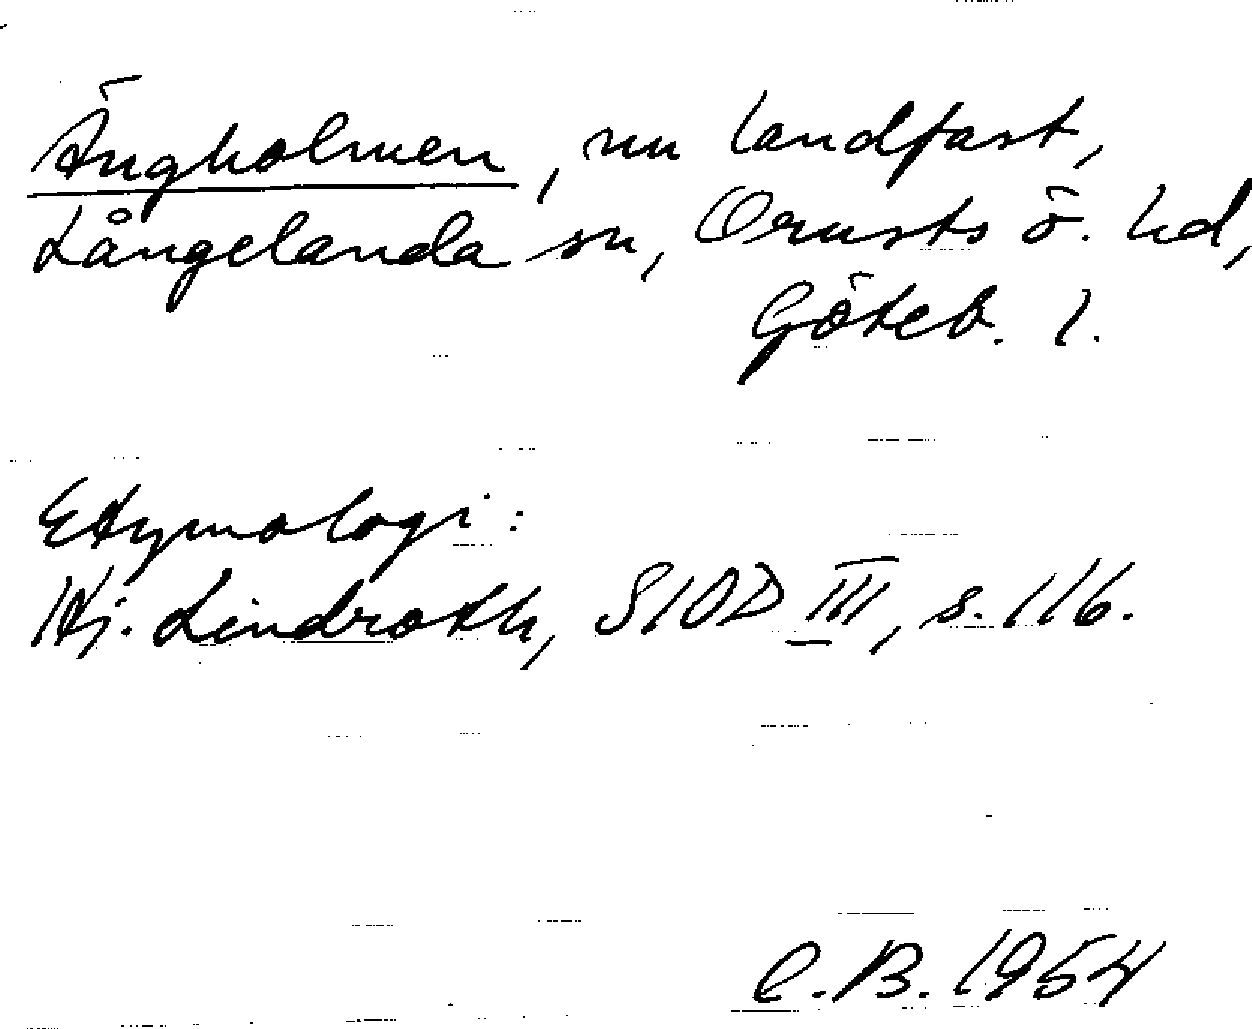 Ängholmen, nu landfast,
Långelanda sn, Orusts ö. hd,
Göteb. l.
Etymologi:
Hj. Lindroth, SIOD III, s. 116.
C.B. 1954